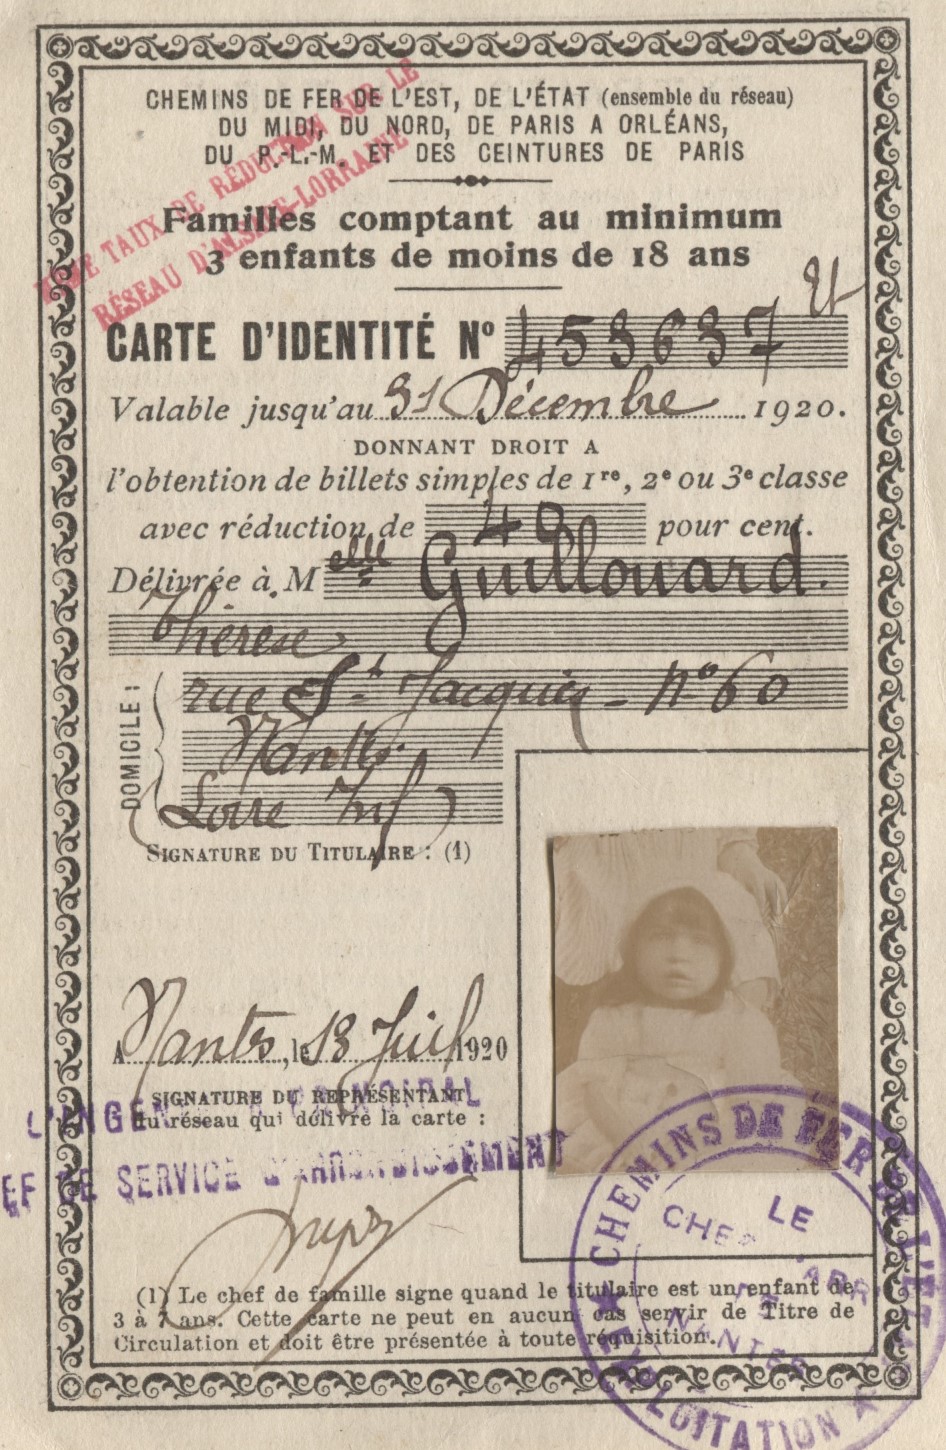 CHEMINS DE FER DE L'EST, DE L'ÉTAT (ensemble du réseau)
DU MIDI, DU NORD, DE PARIS A ORLÉANS,
DU P.-L.-M. ET DES CEINTURES DE PARIS
MÊME TAUX DE RÉDUCTION SUR LE
RÉSEAU D'ALSACE-LORRAINE
Familles comptant au minimum
3 enfants de moins de 18 ans
CARTE D'IDENTITÉ No 453637
Valable jusqu'au 31 Décembre 1920.
DONNANT DROIT A
l'obtention de billets simples de 1re, 2e ou 3e classe
avec réduction de 40 pour cent.
Délivrée à M elle Guillouard.
Thérèse
DOMICILE :
rue St Jacques - No 60
Nantes
(Loire Inf)
SIGNATURE DU TITULAIRE : (1)
A Nantes, le 13 Juil 1920
SIGNATURE DU REPRÉSENTANT
du réseau qui délivre la carte :
L'INGÉNIEUR PRINCIPAL
EF DE SERVICE D'ARRONDISSEMENT
(1) Le chef de famille signe quand le titulaire est un enfant de
3 à 7 ans. Cette carte ne peut en aucun cas servir de Titre de
Circulation et doit être présentée à toute réquisition.
CHEMINS DE FER DE L'ÉTAT
LE
CHEF D'ARR
NANTES
EXPLOITATION